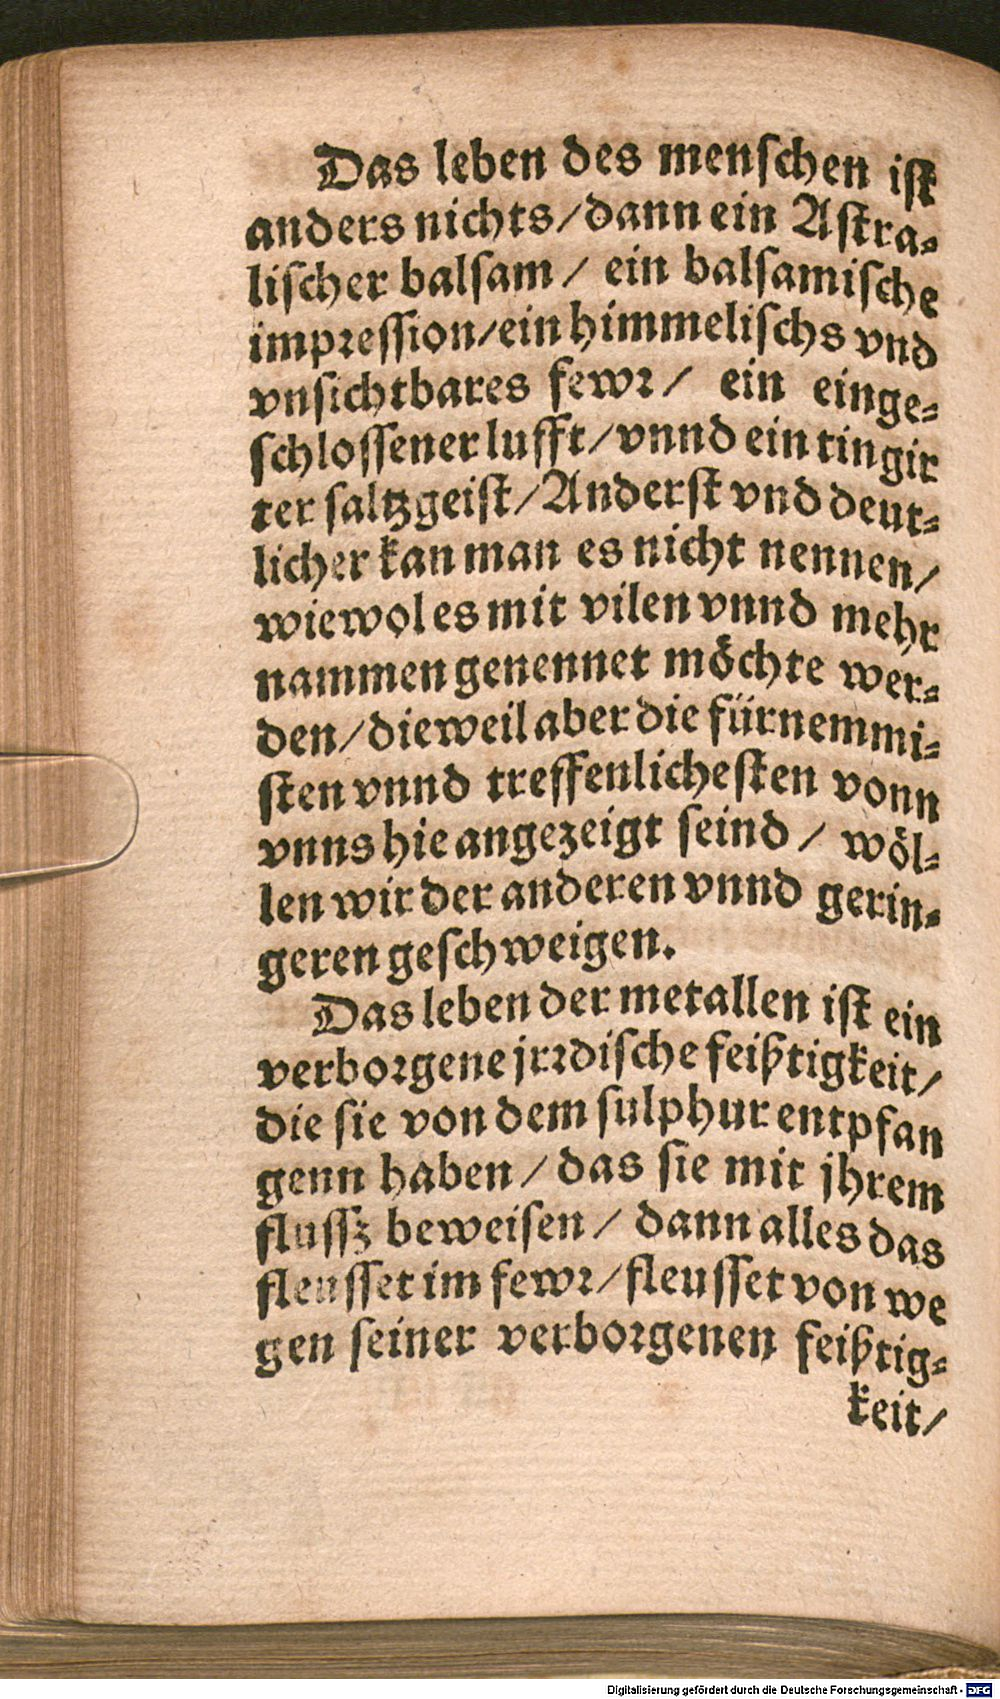 Das leben des menschen ist
anders nichts/dann ein Astra-
lischer balsam/ ein balsamische
impression/ein himmelischs vnd
vnsichtbares fewr/ ein einge-
schlossener lufft/vnnd ein tingir
ter saltzgeist/Anderst vnd deut-
licher kan man es nicht nennen/
wiewol es mit vilen vnnd mehr
nammen genennet möchte wer-
den/dieweil aber die fürnemmi-
sten vnnd treffenlichesten vonn
vnns hie angezeigt seind/ wöl-
len wir der anderen vnnd gerin-
geren geschweigen.
Das leben der metallen ist ein
verborgene jrrdische feißtigkeit/
die sie von dem sulphur entpfan
genn haben/das sie mit jhrem
flussz beweisen/ dann alles das
fleusset im fewr/fleusset von we
gen seiner verborgenen feißtig-
keit/
Digitalisierung gefördert durch die Deutsche Forschungsgemeinschaft - DFG